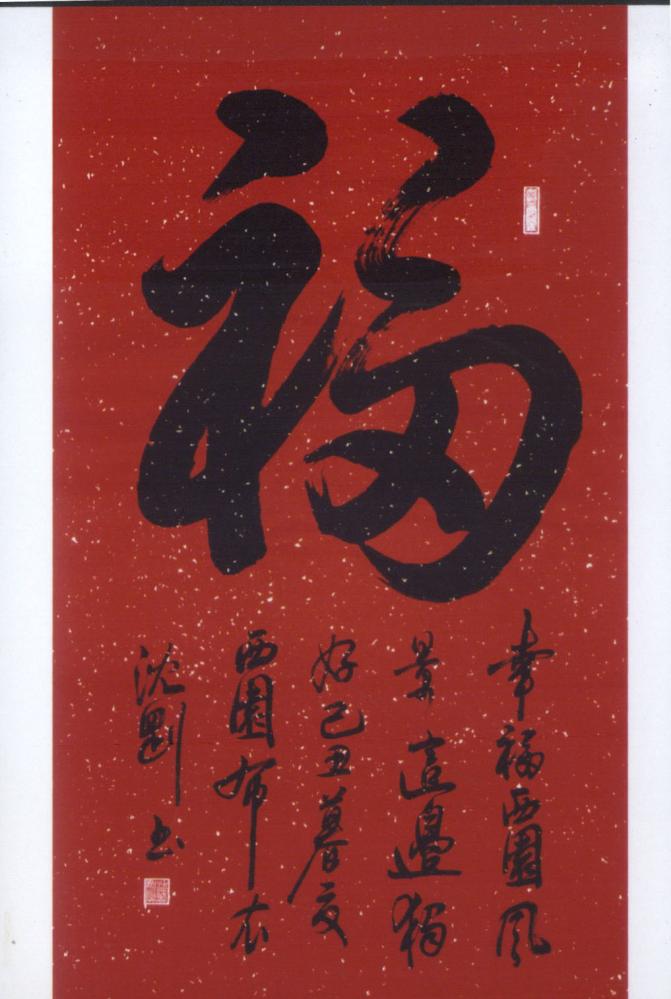 福
幸福西園風
景這邊獨
好己丑暮夏
西園布衣
沈剛书